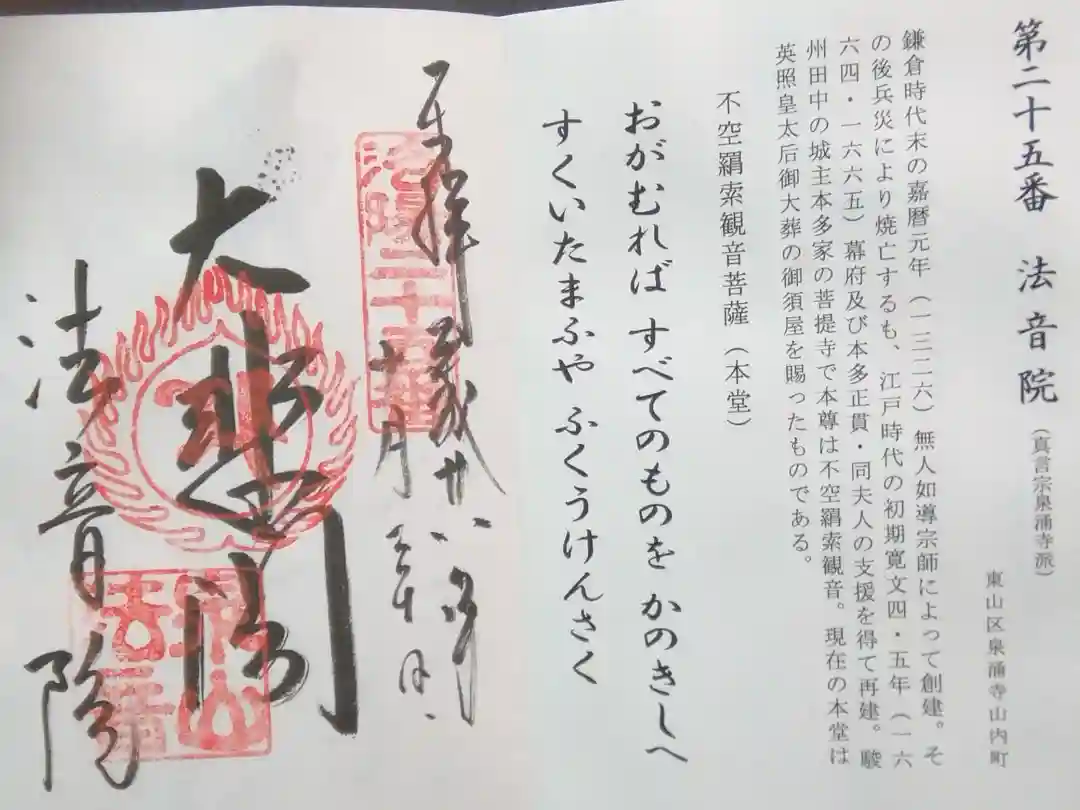 第二十五番 法音院(真言宗泉涌寺派)
東山区泉涌寺山内町
鎌倉時代末の嘉暦元年(一三二六)無人如導宗師によって創建。そ
の後兵災により焼亡するも、江戸時代の初期寛文四・五年(一六
六四・一六六五)幕府及び本多正貫・同夫人の支援を得て再建。駿
州田中の城主本多家の菩提寺で本尊は不空羂索観音。現在の本堂は
英照皇太后御大葬の御須屋を賜ったものである。
不空羂索観音菩薩(本堂)
おがむれば すべてのものを かのきしへ
すくいたまふや ふくうけんさく
奉拝
洛陽二十五番
大悲閣
法音院